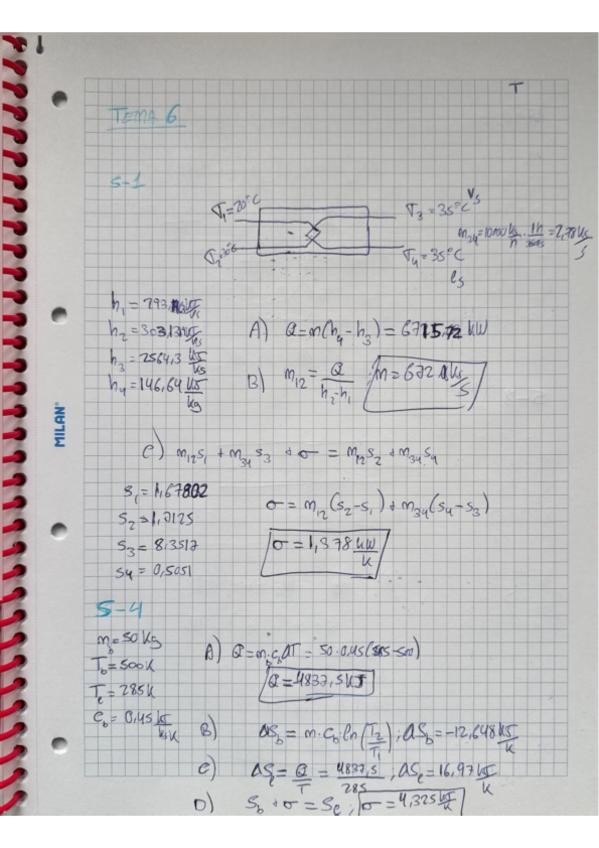 T
TEMA 6
S-1
T₁=20°C
T₃ = 35°C Vs
ṁ₃₄=10000 kg/h · 1h/3600s = 2,78 kg/s
T₂=30°C
T₄ = 35°C
ls
h₁ = 293, kJ/kg
h₂ = 303,13 kJ/kg
h₃ = 2564,3 kJ/kg
h₄ = 146,64 kJ/kg
A) Q=m(h₄-h₃) = 6715,72 kW
B) m₁₂ = Q/(h₂-h₁) ; m=672 kg/s
C) m₁₂s₁ + m₃₄s₃ + σ = m₁₂s₂ + m₃₄s₄
s₁ = 1,67802
s₂ = 1,7125
s₃ = 8,3517
s₄ = 0,5051
σ = m₁₂(s₂-s₁) + m₃₄(s₄-s₃)
σ = 1,378 kW/K
S-4
m_b = 50 kg
T_b = 500K
T_c = 285K
c_b = 0,45 kJ/kgK
A) Q=m·c_bΔT = 50·0,45( -500)
Q=4837,5 kJ
B) ΔS_b = m·c_b ln(T₂/T₁) ; ΔS_b = -12,648 kJ/K
C) ΔS_c = Q/T = 4837,5/285 ; ΔS_c = 16,97 kJ/K
D) S_b + σ = S_c ; σ = 4,325 kJ/K
MILAN